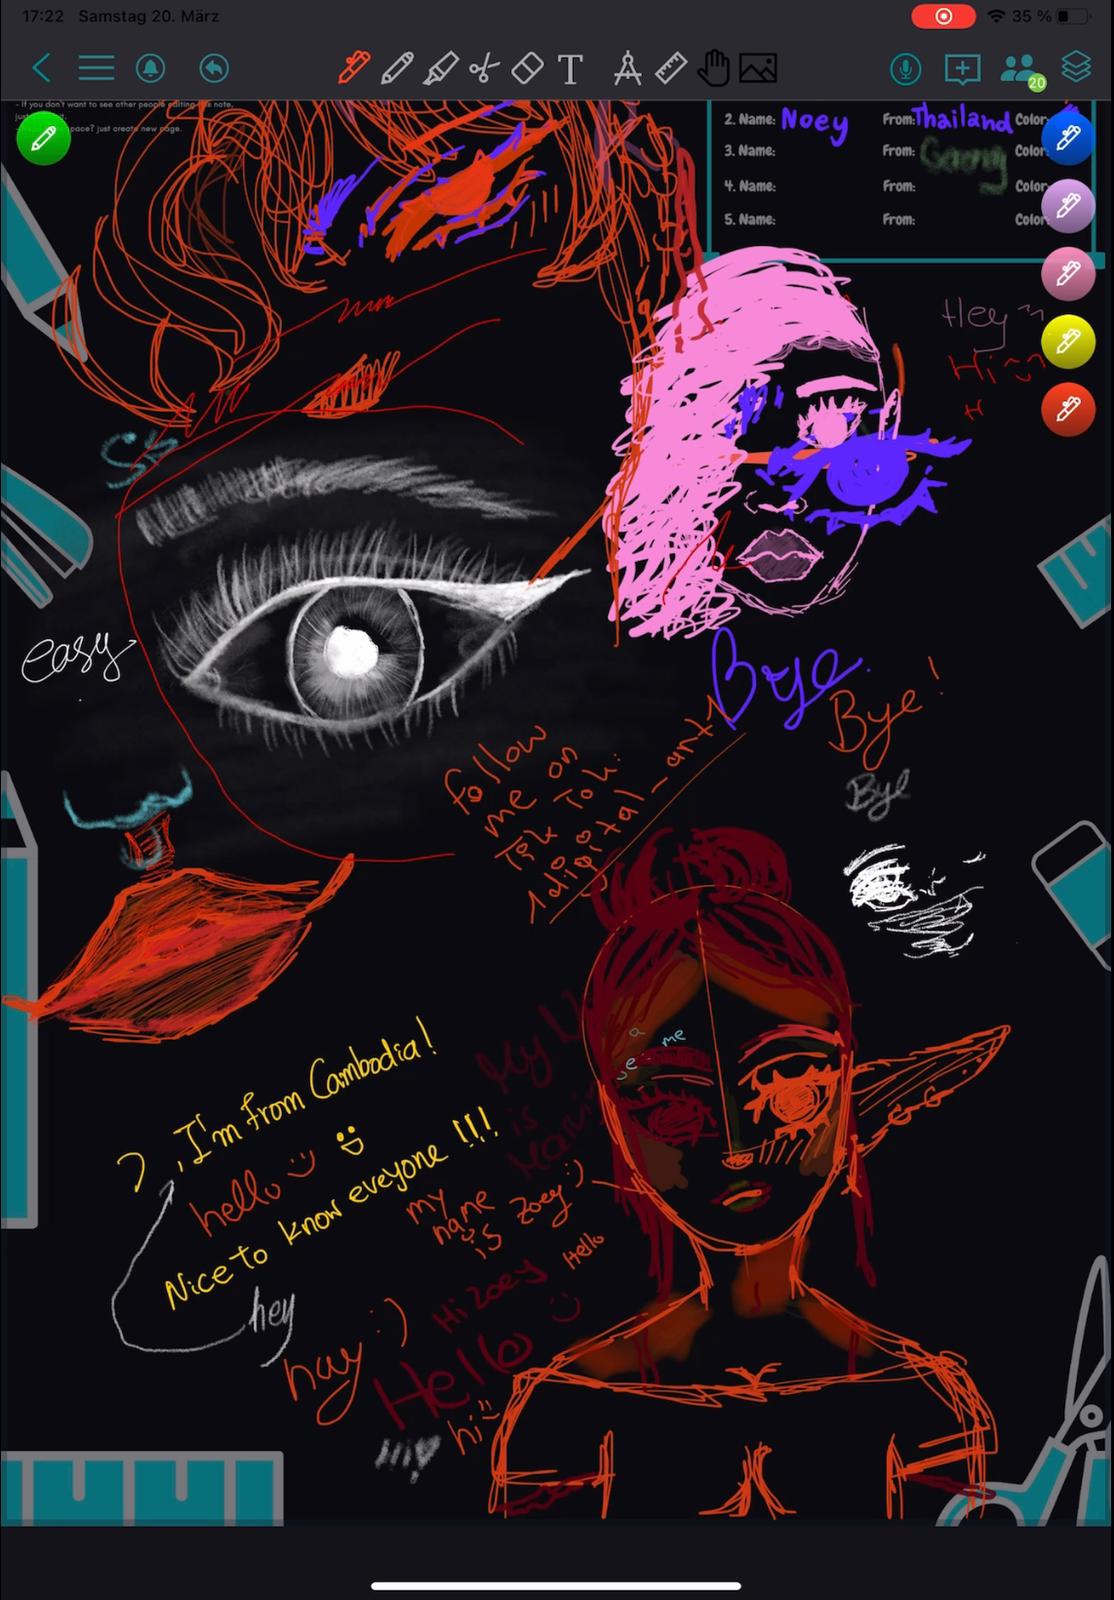 17:22 Samstag 20. März
35 %
20
- If you don't want to see other people editing this note,
just
pace? just create new page.
2. Name: Noey From: Thailand Color:
3. Name: From: Color:
4. Name: From: Color:
5. Name: From: Color:
Hey ~
Hi
H
easy
Bye.
Bye!
Bye
follow
me on
Tok:
digital-art1
a me
My
is
, I'm From Cambodia!
hello :)
Nice to know eveyone !!!
my
name
is Zoey :)
Hello
Hi Zoey
:)
hey
hay :)
Hello
hi
Hi